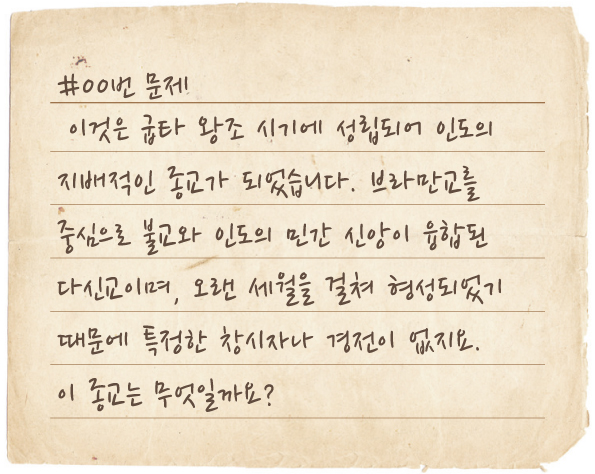 #00번 문제
이것은 굽타 왕조 시기에 성립되어 인도의
지배적인 종교가 되었습니다. 브라만교를
중심으로 불교와 인도의 민간 신앙이 융합된
다신교이며, 오랜 세월을 걸쳐 형성되었기
때문에 특정한 창시자나 경전이 없지요.
이 종교는 무엇일까요?